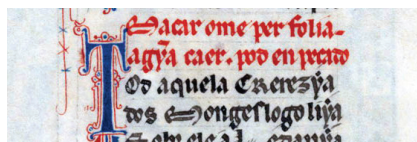 Macar ome per folia-
agỹa caer. pod en pecado
Tod aquela Crerezỹa
dos Monges logo liỹa